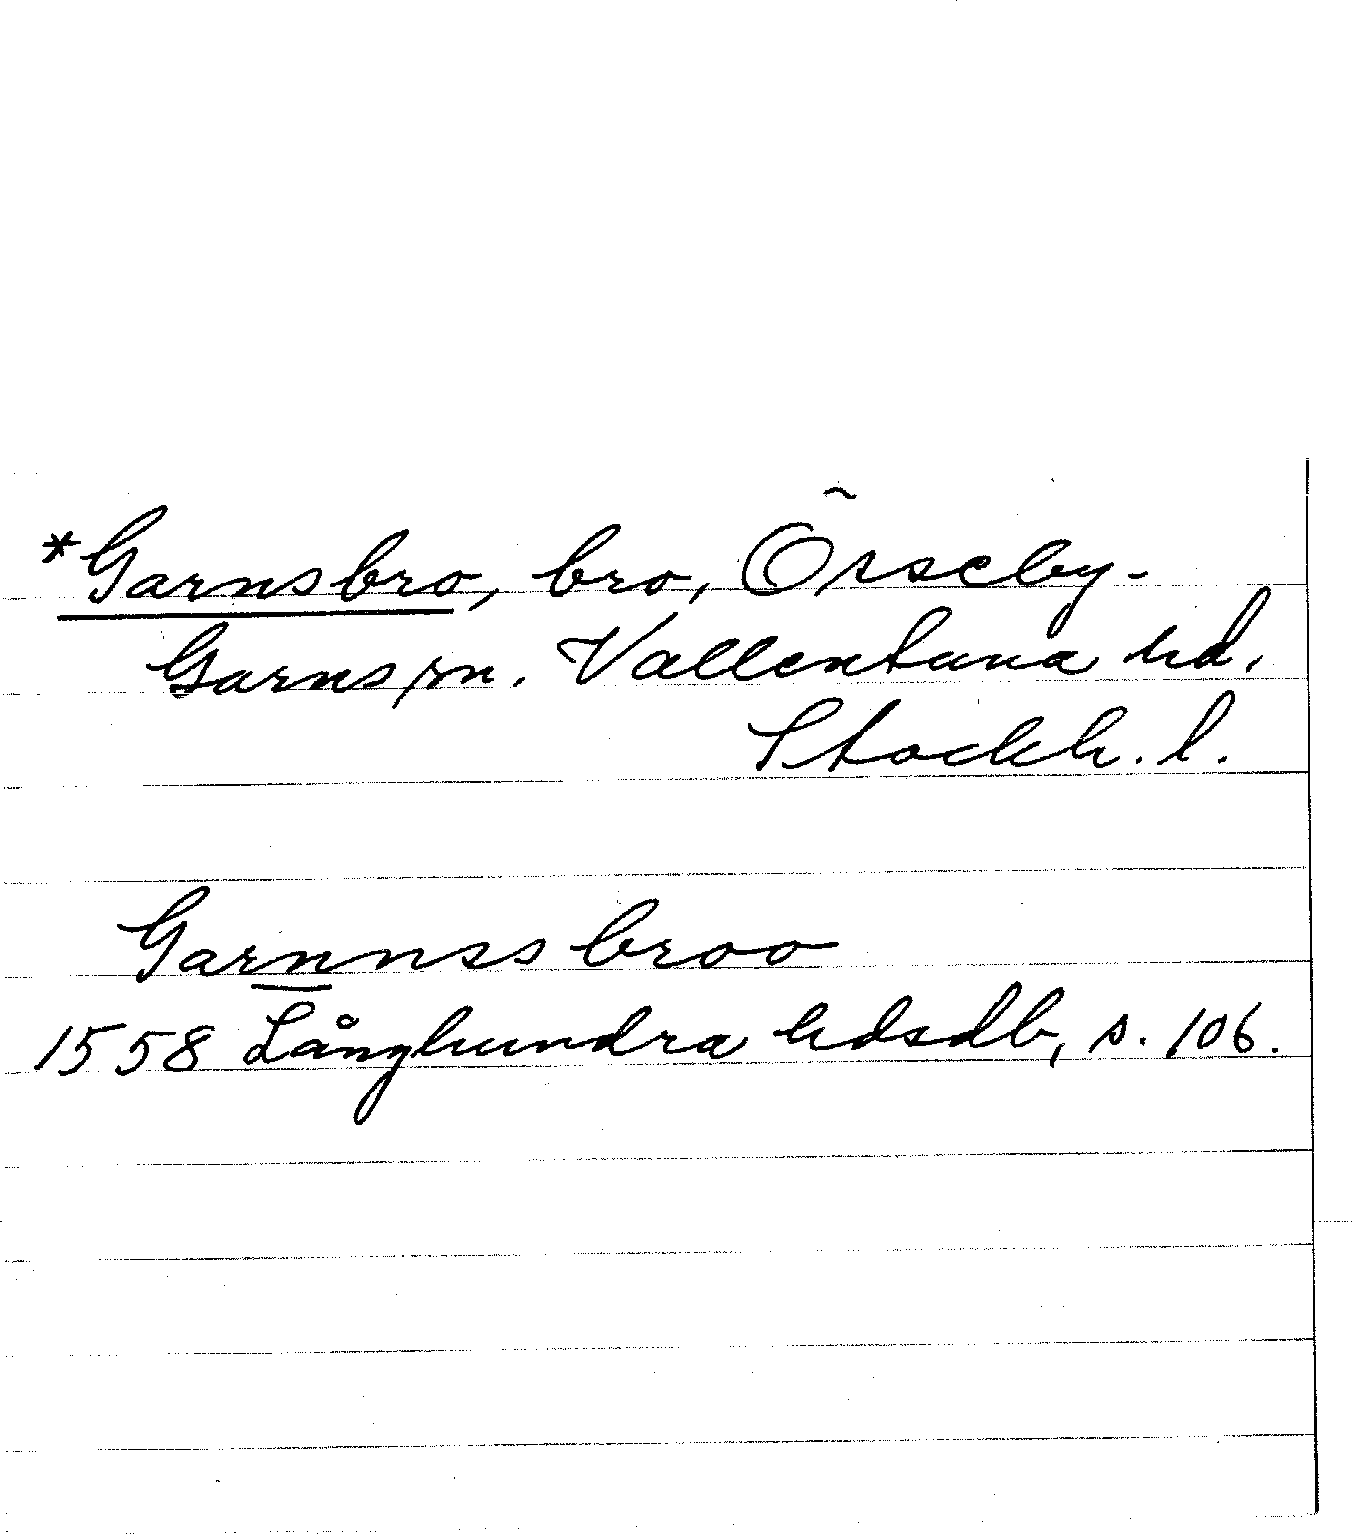 *Garnsbro, bro, Örseby-
Garns sn. Vallentuna hd,
Stockh. l.
Garnnss broo
1558 Långhundra hdsdb, s. 106.